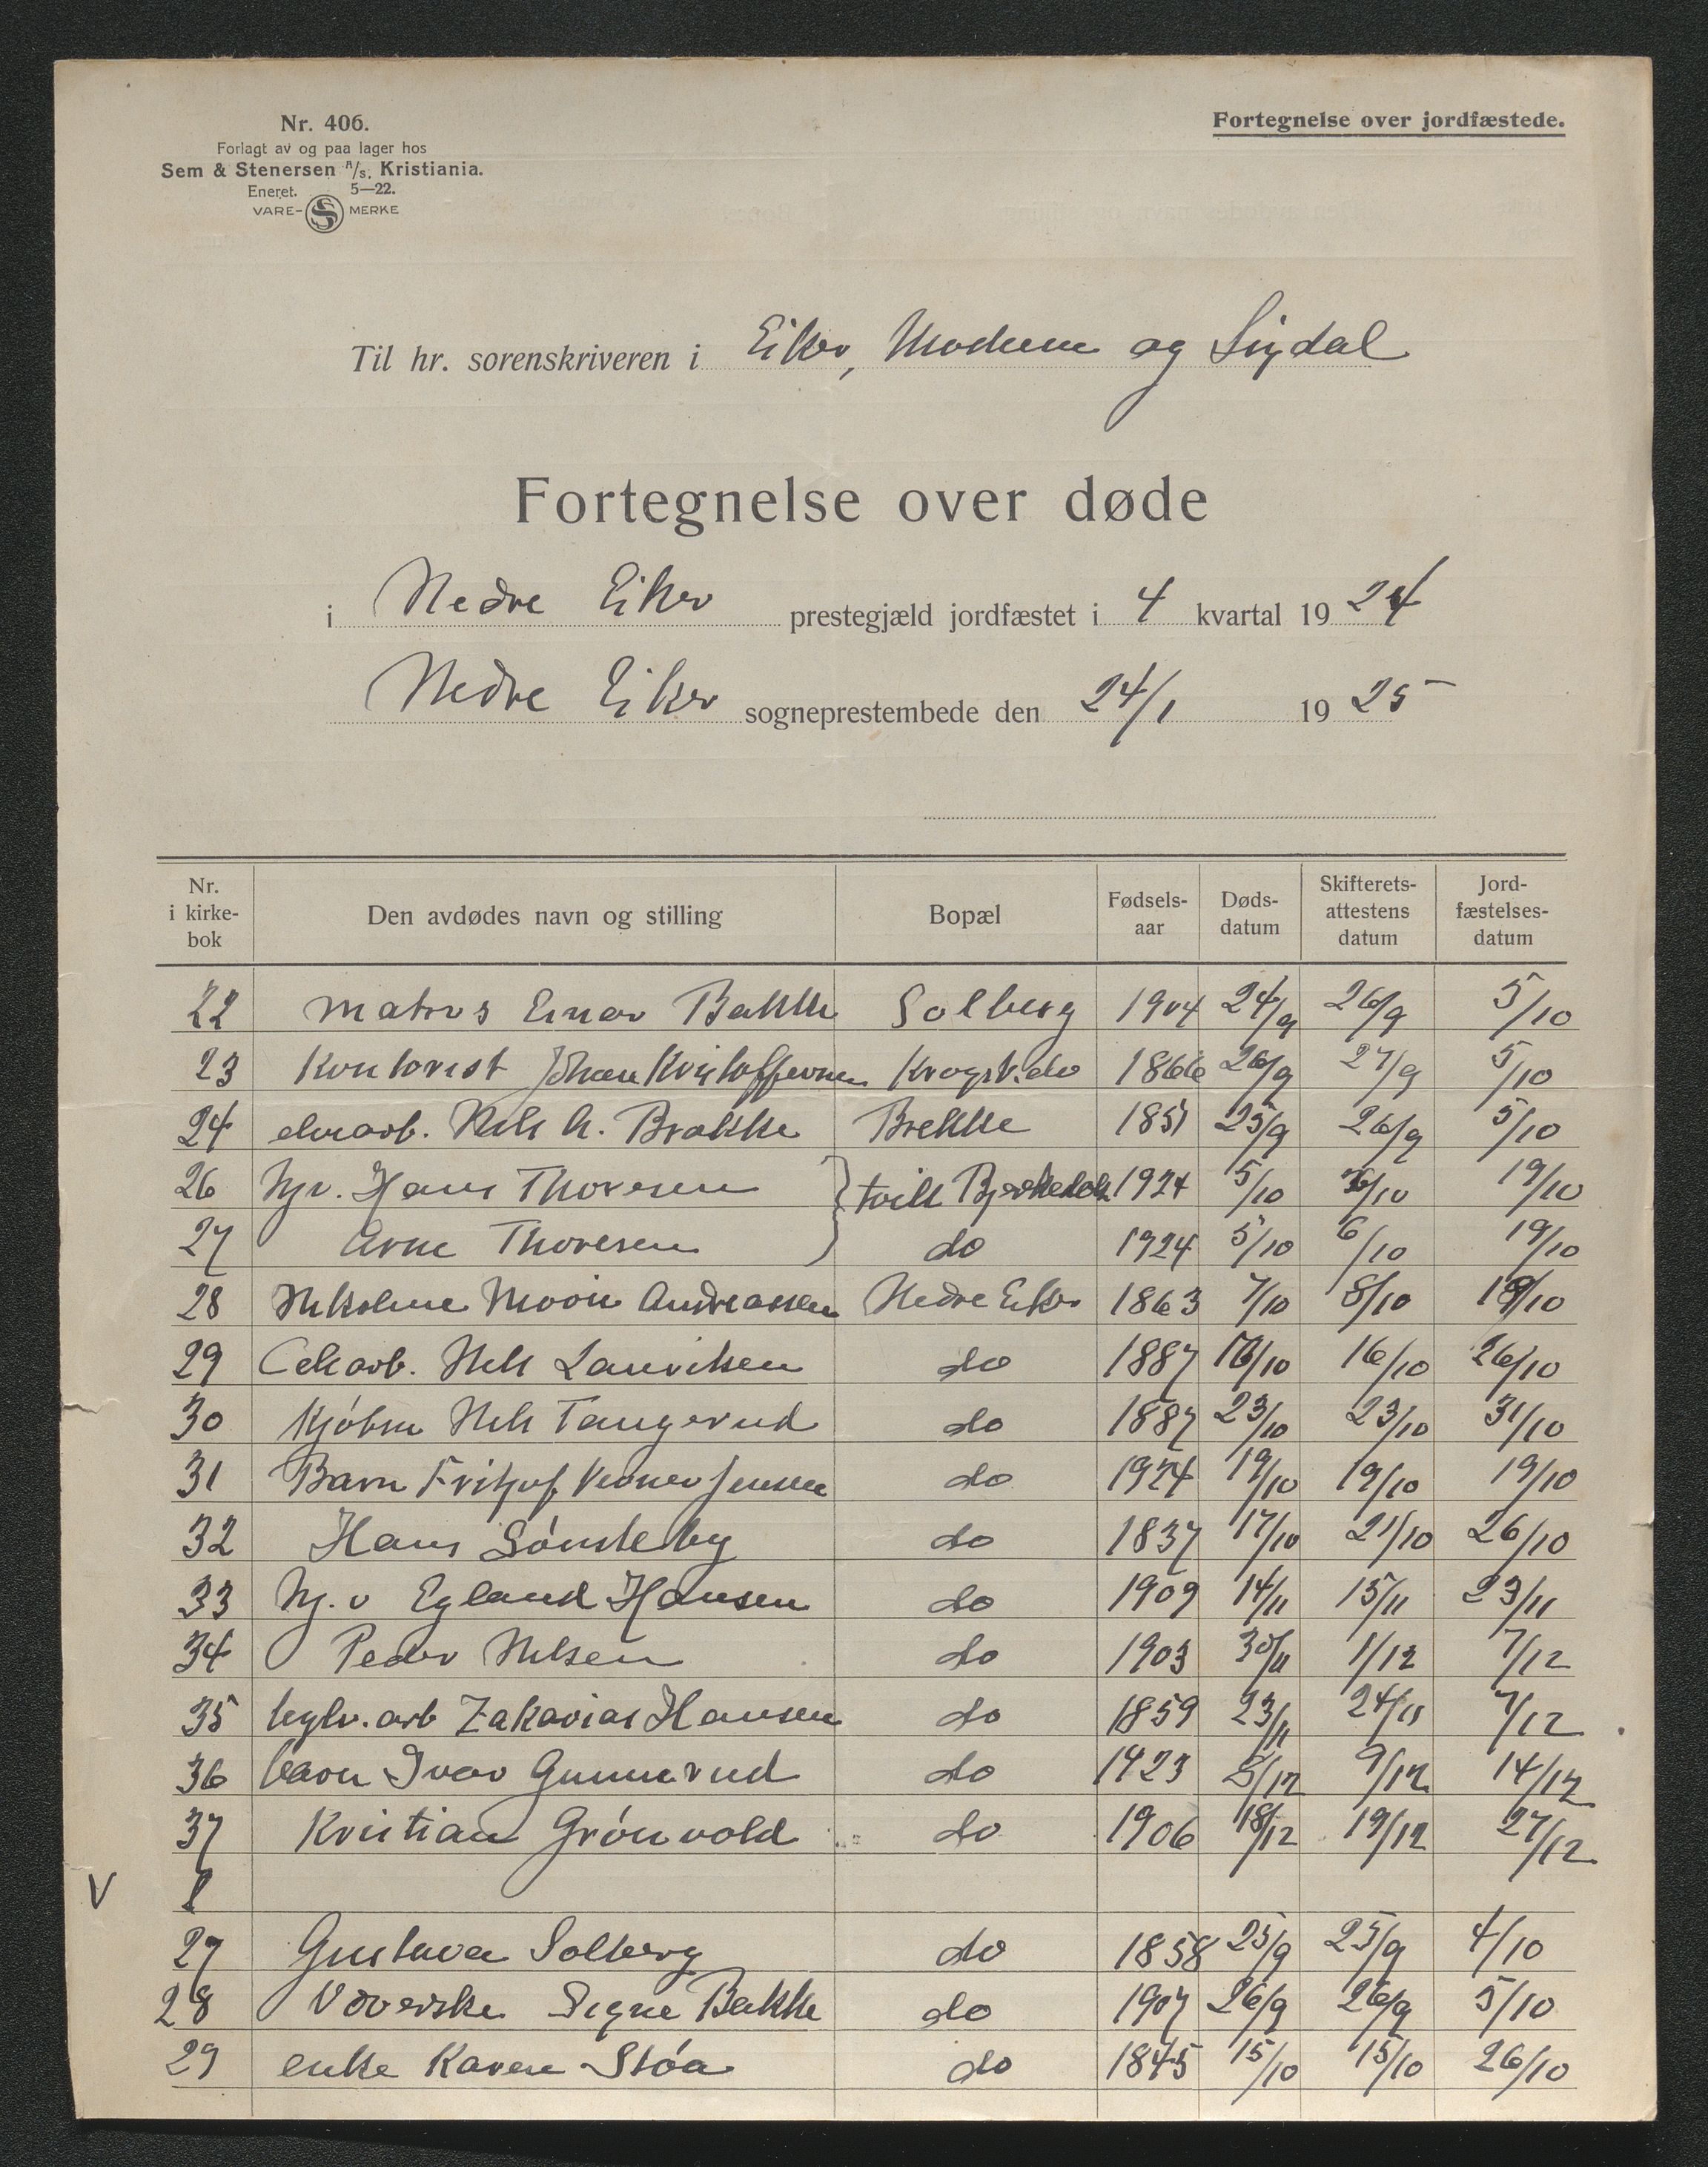 Nr. 406.
Forlagt av og paa lager hos
Sem & Stenersen A/s. Kristiania.
Eneret. 5—22.
VARE- SS MERKE
Fortegnelse over jordfæstede.
Til hr. sorenskriveren i Eiker, Modum og Sigdal
Fortegnelse over døde
i Nedre Eiker prestegjæld jordfæstet i 4 kvartal 1924
Nedre Eiker sogneprestembede den 24/1 1925
Nr. i kirke- bok Den avdødes navn og stilling Bopæl Fødsels- aar Døds- datum Skifterets- attestens datum Jord- fæstelses- datum
22 matros Einar Bakke Solberg 1904 24/9 26/9 5/10
23 Kontorist Johan Kristoffersen Krogst. do 1866 26/9 27/9 5/10
24 Nils A. Brekke 1851 25/9 26/9 5/10
26 Hjv. Hans Thoresen } tvill 1924 5/10 6/10 19/10
27 Arne Thoresen } do 1924 5/10 6/10 19/10
28 Andreassen Nedre Eiker 1863 7/10 8/10 /10
29 Cel.arb. Nils Lauritsen do 1887 /10 16/10 26/10
30 Kjøbm Nils Tangerud do 1887 23/10 23/10 31/10
31 Barn Fritjof Verner Jensen do 1924 19/10 19/10 19/10
32 Hans Sønsteby do 1837 17/10 21/10 26/10
33 Hj. v Egland Hansen do 1909 14/11 15/11 23/11
34 Peder Nilsen do 1903 30/11 1/12 7/12
35 arb Zakarias Hansen do 1859 23/11 24/11 7/12
36 barn Ivar Gunnerud do 1923 /12 9/12 14/12
37 Kristian Grönvold do 1906 18/12 19/12 27/12
V
27 Gustava Solberg do 1858 25/9 25/9 4/10
28 Væverske Signe Bakke do 1907 26/9 26/9 5/10
29 enke Karen Stóa do 1845 15/10 15/10 26/10